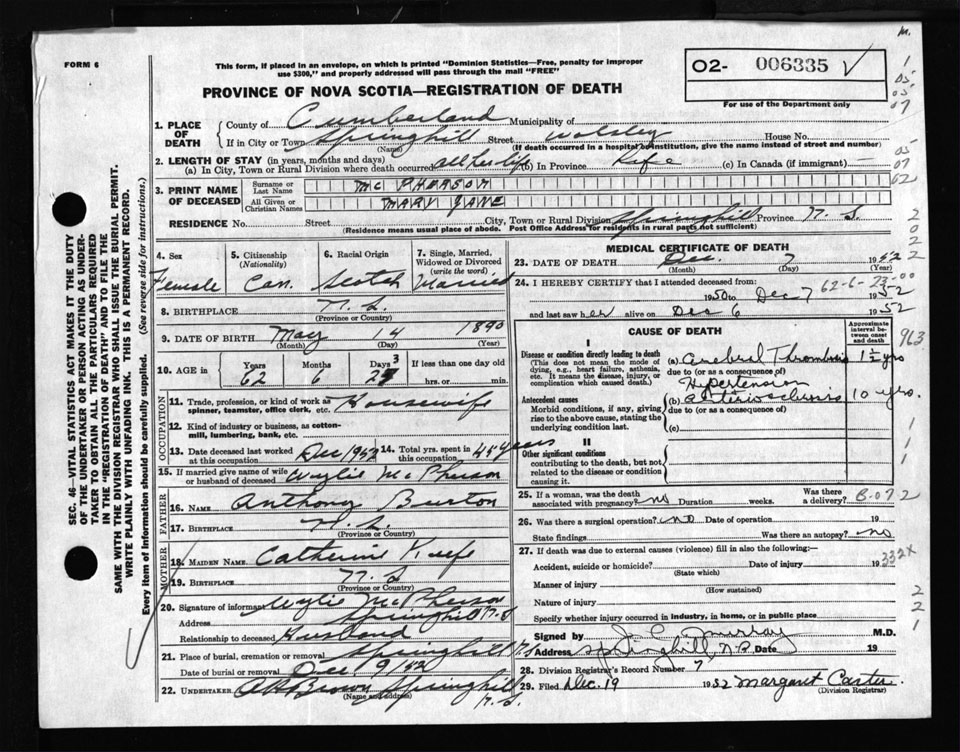 M.
FORM 6
This form, if placed in an envelope, on which is printed "Dominion Statistics—Free, penalty for improper
use $300," and properly addressed will pass through the mail "FREE"
O2- 006335 √
For use of the Department only
PROVINCE OF NOVA SCOTIA—REGISTRATION OF DEATH
1. PLACE OF DEATH
County of Cumberland Municipality of
If in City or Town Springhill Street Wolsley House No.
(Name) (If death occurred in a hospital or institution, give the name instead of street and number)
2. LENGTH OF STAY (in years, months and days)
(a) In City, Town or Rural Division where death occurred all her life (b) In Province Life (c) In Canada (if immigrant) —
3. PRINT NAME OF DECEASED
Surname or Last Name MC PHERSON
All Given or Christian Names MARY JANE
RESIDENCE No. Street City, Town or Rural Division Springhill Province N. S.
(Residence means usual place of abode. Post Office Address for residents in rural parts not sufficient)
4. Sex Female
5. Citizenship (Nationality) Can.
6. Racial Origin Scotch
7. Single, Married, Widowed or Divorced (write the word) Married
8. BIRTHPLACE N. S.
(Province or Country)
9. DATE OF BIRTH May 14 1890
(Month) (Day) (Year)
10. AGE in Years Months Days If less than one day
62 6 23 hrs. or min.
OCCUPATION
11. Trade, profession, or kind of work as spinner, teamster, office clerk, etc. Housewife
12. Kind of industry or business, as cotton-mill, lumbering, bank, etc.
13. Date deceased last worked at this occupation Dec 1952
14. Total yrs. spent in this occupation 45 years
15. If married give name of wife or husband of deceased Wylie McPherson
FATHER
16. NAME Anthony Burton
17. BIRTHPLACE N. S.
MOTHER
18. MAIDEN NAME Catherine Keefe
19. BIRTHPLACE N. S
(Province or Country)
20. Signature of informant Wylie McPherson
Address Springhill N. S
Relationship to deceased Husband
21. Place of burial, cremation or removal Springhill N S
Date of burial or removal Dec 9/52
22. UNDERTAKER A H Brown Springhill N. S.
(Name and address)
MEDICAL CERTIFICATE OF DEATH
23. DATE OF DEATH Dec. 7 1952
(Month) (Day) (Year)
62-6-23-00
24. I HEREBY CERTIFY that I attended deceased from:
1950 to Dec 7 1952
and last saw her alive on Dec 6 1952
CAUSE OF DEATH
Approximate interval between onset and death
I
Disease or condition directly leading to death
(This does not mean the mode of dying, e.g., heart failure, asthenia, etc. It means the disease, injury, or complication which caused death.)
(a) Cerebral Thrombosis 1½ yrs
due to (or as a consequence of)
Antecedent causes
Morbid conditions, if any, giving rise to the above cause, stating the underlying condition last.
Hypertension
(b) arteriosclerosis 10 yrs.
due to (or as a consequence of)
(c)
II
Other significant conditions
contributing to the death, but not related to the disease or condition causing it.
25. If a woman, was the death associated with pregnancy? no Duration weeks. Was there a delivery?
B-072
26. Was there a surgical operation? no Date of operation 19
State findings Was there an autopsy? no
27. If death was due to external causes (violence) fill in also the following:—
Accident, suicide or homicide? Date of injury 19
(State which)
332X
Manner of injury
(How sustained)
Nature of injury
Specify whether injury occurred in industry, in home, or in public place
Signed by J. G. Murray M.D.
Address Springhill, N.S. Date 19
28. Division Registrar's Record Number 7
29. Filed Dec. 19 1952 Margaret Carter.
(Division Registrar)
SEC. 46—VITAL STATISTICS ACT MAKES IT THE DUTY
OF THE UNDERTAKER OR PERSON ACTING AS UNDER-
TAKER TO OBTAIN ALL THE PARTICULARS REQUIRED
IN THE "REGISTRATION OF DEATH" AND TO FILE THE
SAME WITH THE DIVISION REGISTRAR WHO SHALL ISSUE THE BURIAL PERMIT.
WRITE PLAINLY WITH UNFADING INK. THIS IS A PERMANENT RECORD.
Every item of Information should be carefully supplied. (See reverse side for instructions.)
1
05
05
07
05
07
62
2
0
2
2
963
1
1
1
2
2
1